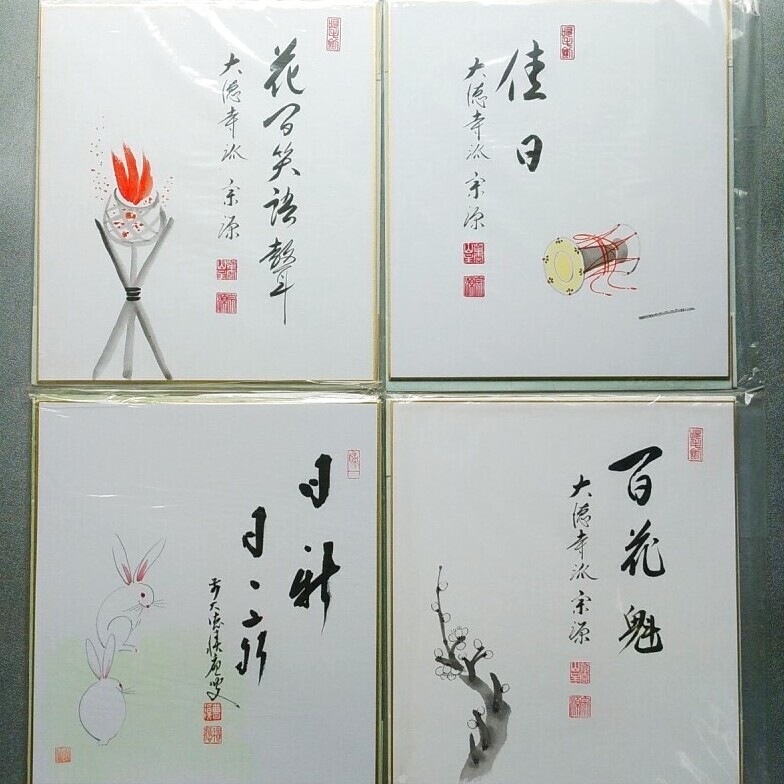 花間笑語聲
大徳寺派 宗源
佳日
大徳寺派 宗源
日新
日々新
前大徳
百花魁
大徳寺派 宗源